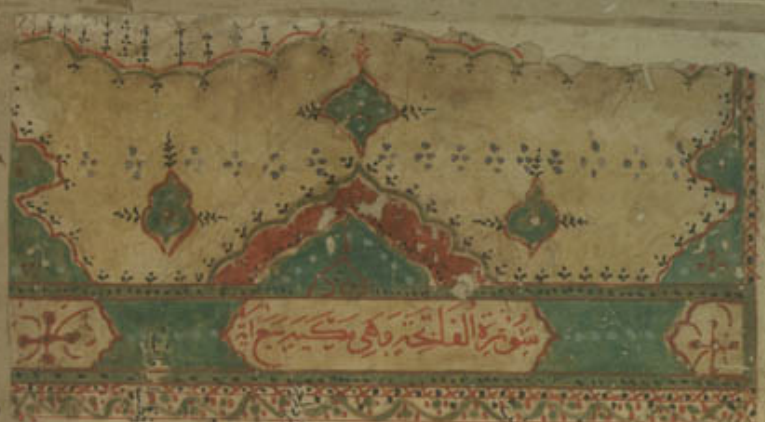 سُورة الفاتحة وهي مكية سبع